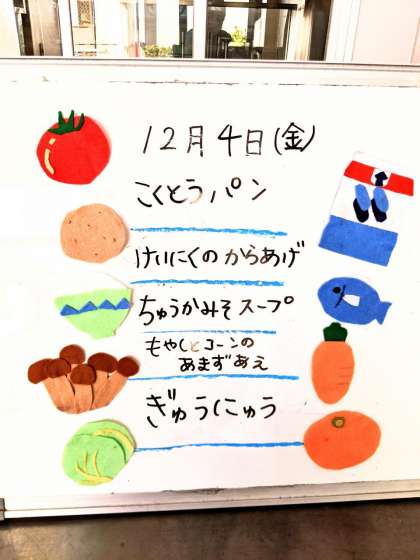 12月4日(金)
こくとうパン
けいにくのからあげ
ちゅうかみそスープ
もやしとコーンの
あまずあえ
ぎゅうにゅう